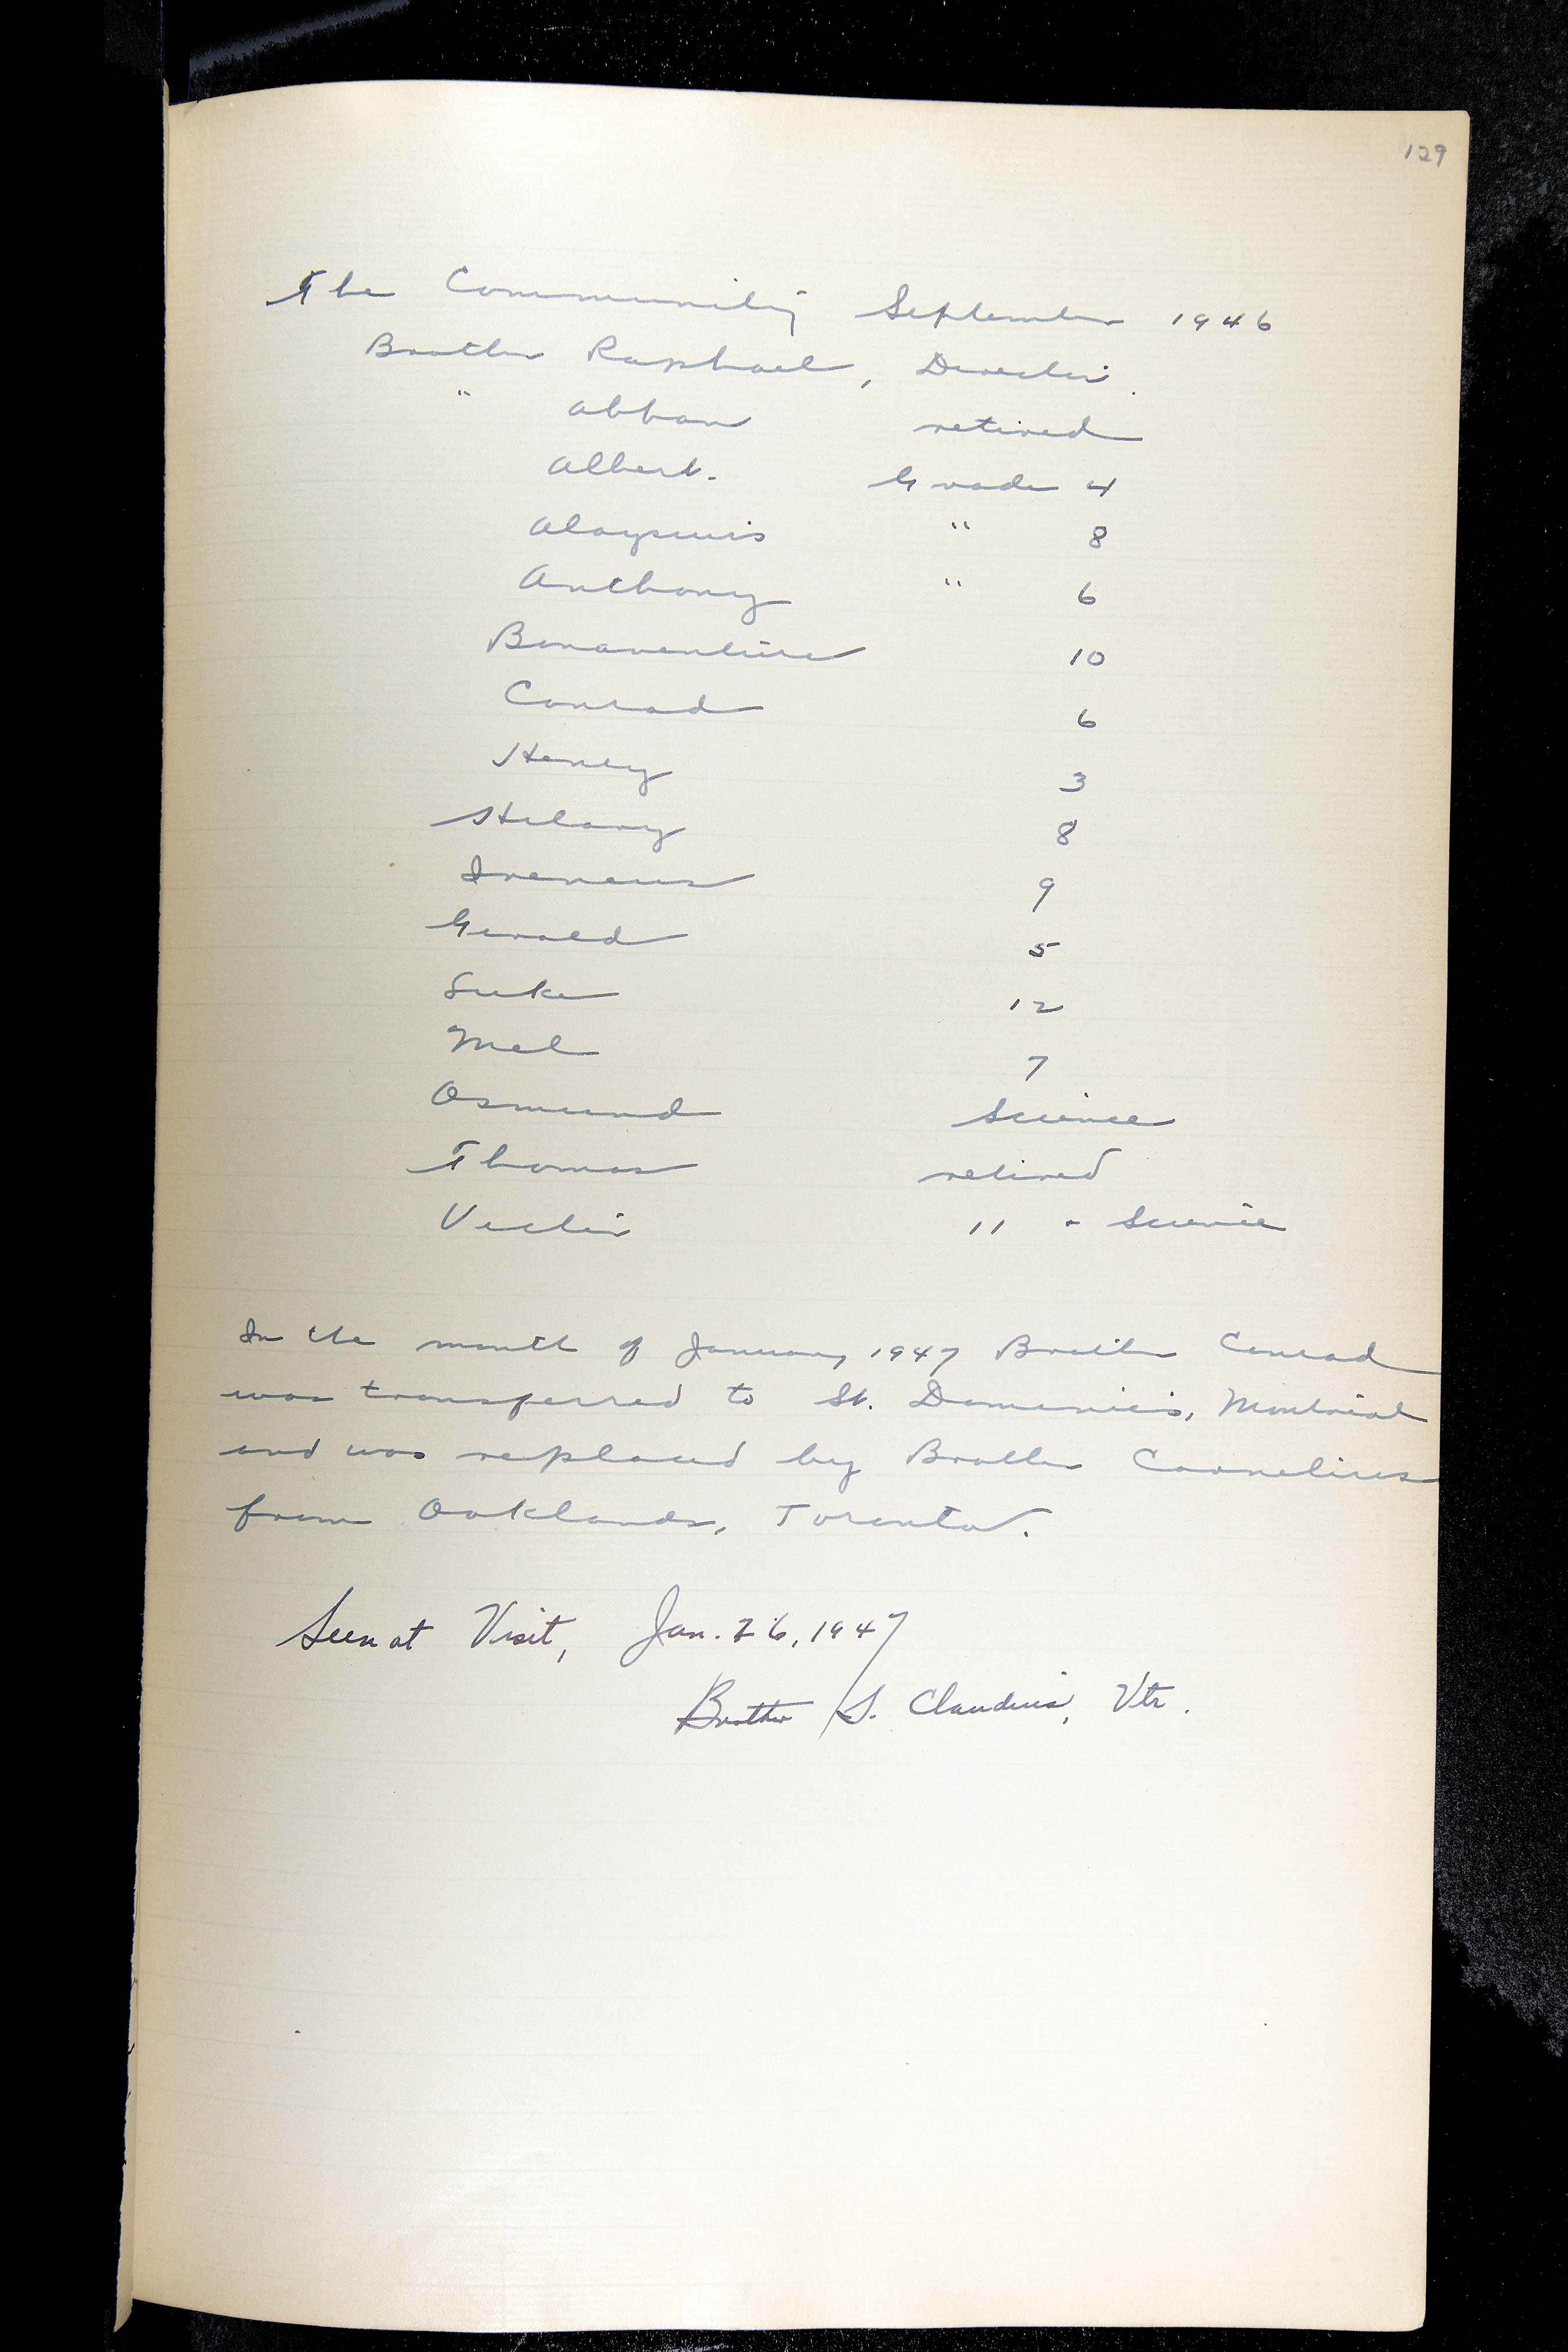 129
The Community September 1946
Brother Raphael, Director.
" Abban retired
Albert. Grade 4
Aloysius " 8
Anthony " 6
Bonaventure 10
Conrad 6
Henry 3
Hilary 8
Ireneus 9
Gerald 5
Luke 12
Mel 7
Osmund Science
Thomas retired
Victor 11 - Science
In the month of January 1947 Brother Conrad
was transferred to St. Dominic's, Montreal
and was replaced by Brother Cornelius
from Oaklands, Toronto.
Seen at Visit, Jan. 26, 1947
Brother S. Claudius, Vtr.